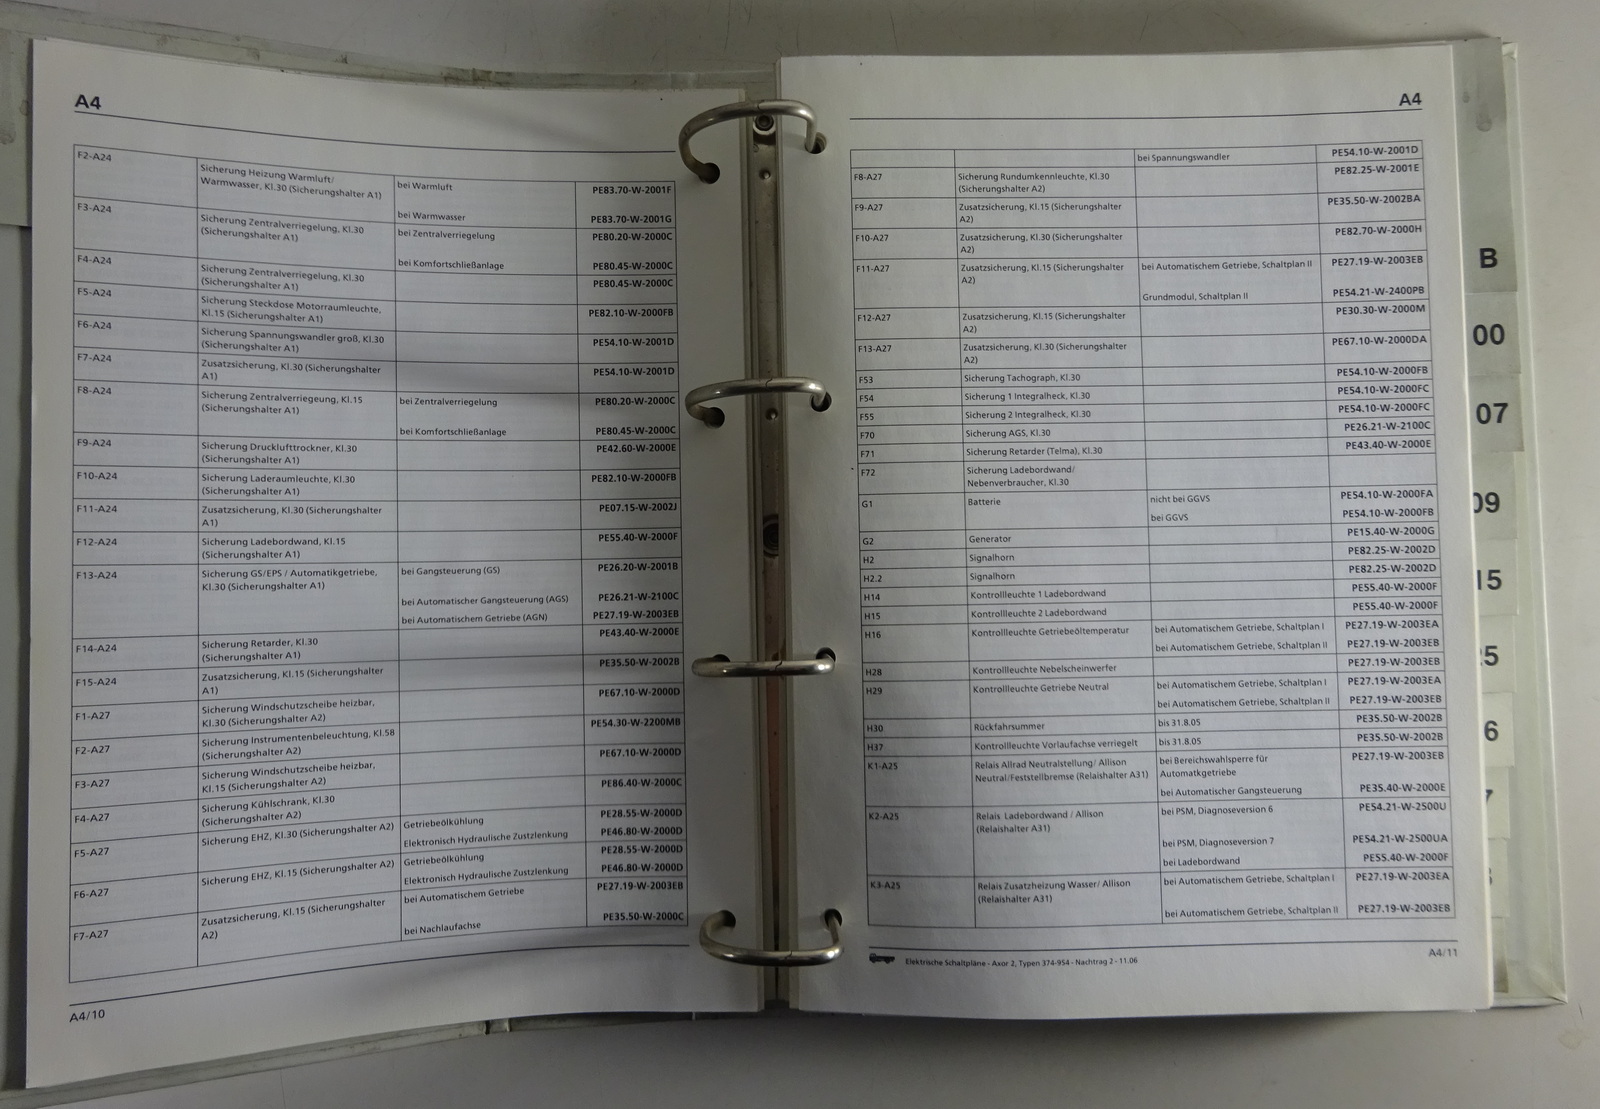 A4
F2-A24
Sicherung Heizung Warmluft/
Warmwasser, Kl.30 (Sicherungshalter A1)
bei Warmluft
PE83.70-W-2001F
bei Warmwasser
PE83.70-W-2001G
F3-A24
Sicherung Zentralverriegelung, Kl.30
(Sicherungshalter A1)
bei Zentralverriegelung
PE80.20-W-2000C
bei Komfortschließanlage
PE80.45-W-2000C
F4-A24
Sicherung Zentralverriegelung, Kl.30
(Sicherungshalter A1)
PE80.45-W-2000C
F5-A24
Sicherung Steckdose Motorraumleuchte,
Kl.15 (Sicherungshalter A1)
PE82.10-W-2000FB
F6-A24
Sicherung Spannungswandler groß, Kl.30
(Sicherungshalter A1)
PE54.10-W-2001D
F7-A24
Zusatzsicherung, Kl.30 (Sicherungshalter
A1)
PE54.10-W-2001D
F8-A24
Sicherung Zentralverriegeung, Kl.15
(Sicherungshalter A1)
bei Zentralverriegelung
PE80.20-W-2000C
bei Komfortschließanlage
PE80.45-W-2000C
F9-A24
Sicherung Drucklufttrockner, Kl.30
(Sicherungshalter A1)
PE42.60-W-2000E
F10-A24
Sicherung Laderaumleuchte, Kl.30
(Sicherungshalter A1)
PE82.10-W-2000FB
F11-A24
Zusatzsicherung, Kl.30 (Sicherungshalter
A1)
PE07.15-W-2002J
F12-A24
Sicherung Ladebordwand, Kl.15
(Sicherungshalter A1)
PE55.40-W-2000F
F13-A24
Sicherung GS/EPS / Automatikgetriebe,
Kl.30 (Sicherungshalter A1)
bei Gangsteuerung (GS)
PE26.20-W-2001B
bei Automatischer Gangsteuerung (AGS)
PE26.21-W-2100C
bei Automatischem Getriebe (AGN)
PE27.19-W-2003EB
F14-A24
Sicherung Retarder, Kl.30
(Sicherungshalter A1)
PE43.40-W-2000E
F15-A24
Zusatzsicherung, Kl.15 (Sicherungshalter
A1)
PE35.50-W-2002B
F1-A27
Sicherung Windschutzscheibe heizbar,
Kl.30 (Sicherungshalter A2)
PE67.10-W-2000D
F2-A27
Sicherung Instrumentenbeleuchtung, Kl.58
(Sicherungshalter A2)
PE54.30-W-2200MB
F3-A27
Sicherung Windschutzscheibe heizbar,
Kl.15 (Sicherungshalter A2)
PE67.10-W-2000D
F4-A27
Sicherung Kühlschrank, Kl.30
(Sicherungshalter A2)
PE86.40-W-2000C
F5-A27
Sicherung EHZ, Kl.30 (Sicherungshalter A2)
Getriebeölkühlung
PE28.55-W-2000D
Elektronisch Hydraulische Zustzlenkung
PE46.80-W-2000D
F6-A27
Sicherung EHZ, Kl.15 (Sicherungshalter A2)
Getriebeölkühlung
PE28.55-W-2000D
Elektronisch Hydraulische Zustzlenkung
PE46.80-W-2000D
F7-A27
Zusatzsicherung, Kl.15 (Sicherungshalter
A2)
bei Automatischem Getriebe
PE27.19-W-2003EB
bei Nachlaufachse
PE35.50-W-2000C
A4/10
A4
bei Spannungswandler
PE54.10-W-2001D
F8-A27
Sicherung Rundumkennleuchte, Kl.30
(Sicherungshalter A2)
PE82.25-W-2001E
F9-A27
Zusatzsicherung, Kl.15 (Sicherungshalter
A2)
PE35.50-W-2002BA
F10-A27
Zusatzsicherung, Kl.30 (Sicherungshalter
A2)
PE82.70-W-2000H
F11-A27
Zusatzsicherung, Kl.15 (Sicherungshalter
A2)
bei Automatischem Getriebe, Schaltplan II
PE27.19-W-2003EB
Grundmodul, Schaltplan II
PE54.21-W-2400PB
F12-A27
Zusatzsicherung, Kl.15 (Sicherungshalter
A2)
PE30.30-W-2000M
F13-A27
Zusatzsicherung, Kl.30 (Sicherungshalter
A2)
PE67.10-W-2000DA
F53
Sicherung Tachograph, Kl.30
PE54.10-W-2000FB
F54
Sicherung 1 Integralheck, Kl.30
PE54.10-W-2000FC
F55
Sicherung 2 Integralheck, Kl.30
PE54.10-W-2000FC
F70
Sicherung AGS, Kl.30
PE26.21-W-2100C
F71
Sicherung Retarder (Telma), Kl.30
PE43.40-W-2000E
F72
Sicherung Ladebordwand/
Nebenverbraucher, Kl.30
G1
Batterie
nicht bei GGVS
PE54.10-W-2000FA
bei GGVS
PE54.10-W-2000FB
G2
Generator
PE15.40-W-2000G
H2
Signalhorn
PE82.25-W-2002D
H2.2
Signalhorn
PE82.25-W-2002D
H14
Kontrollleuchte 1 Ladebordwand
PE55.40-W-2000F
H15
Kontrollleuchte 2 Ladebordwand
PE55.40-W-2000F
H16
Kontrollleuchte Getriebeöltemperatur
bei Automatischem Getriebe, Schaltplan I
PE27.19-W-2003EA
bei Automatischem Getriebe, Schaltplan II
PE27.19-W-2003EB
H28
Kontrollleuchte Nebelscheinwerfer
PE27.19-W-2003EB
H29
Kontrollleuchte Getriebe Neutral
bei Automatischem Getriebe, Schaltplan I
PE27.19-W-2003EA
bei Automatischem Getriebe, Schaltplan II
PE27.19-W-2003EB
H30
Rückfahrsummer
bis 31.8.05
PE35.50-W-2002B
H37
Kontrollleuchte Vorlaufachse verriegelt
bis 31.8.05
PE35.50-W-2002B
K1-A25
Relais Allrad Neutralstellung/ Allison
Neutral/Feststellbremse (Relaishalter A31)
bei Bereichswahlsperre für
Automatkgetriebe
PE27.19-W-2003EB
bei Automatischer Gangsteuerung
PE35.40-W-2000E
K2-A25
Relais Ladebordwand / Allison
(Relaishalter A31)
bei PSM, Diagnoseversion 6
PE54.21-W-2500U
bei PSM, Diagnoseversion 7
PE54.21-W-2500UA
bei Ladebordwand
PE55.40-W-2000F
K3-A25
Relais Zusatzheizung Wasser/ Allison
(Relaishalter A31)
bei Automatischem Getriebe, Schaltplan I
PE27.19-W-2003EA
bei Automatischem Getriebe, Schaltplan II
PE27.19-W-2003EB
Elektrische Schaltpläne - Axor 2, Typen 374-954 - Nachtrag 2 - 11.06
A4/11
B
00
07
09
15